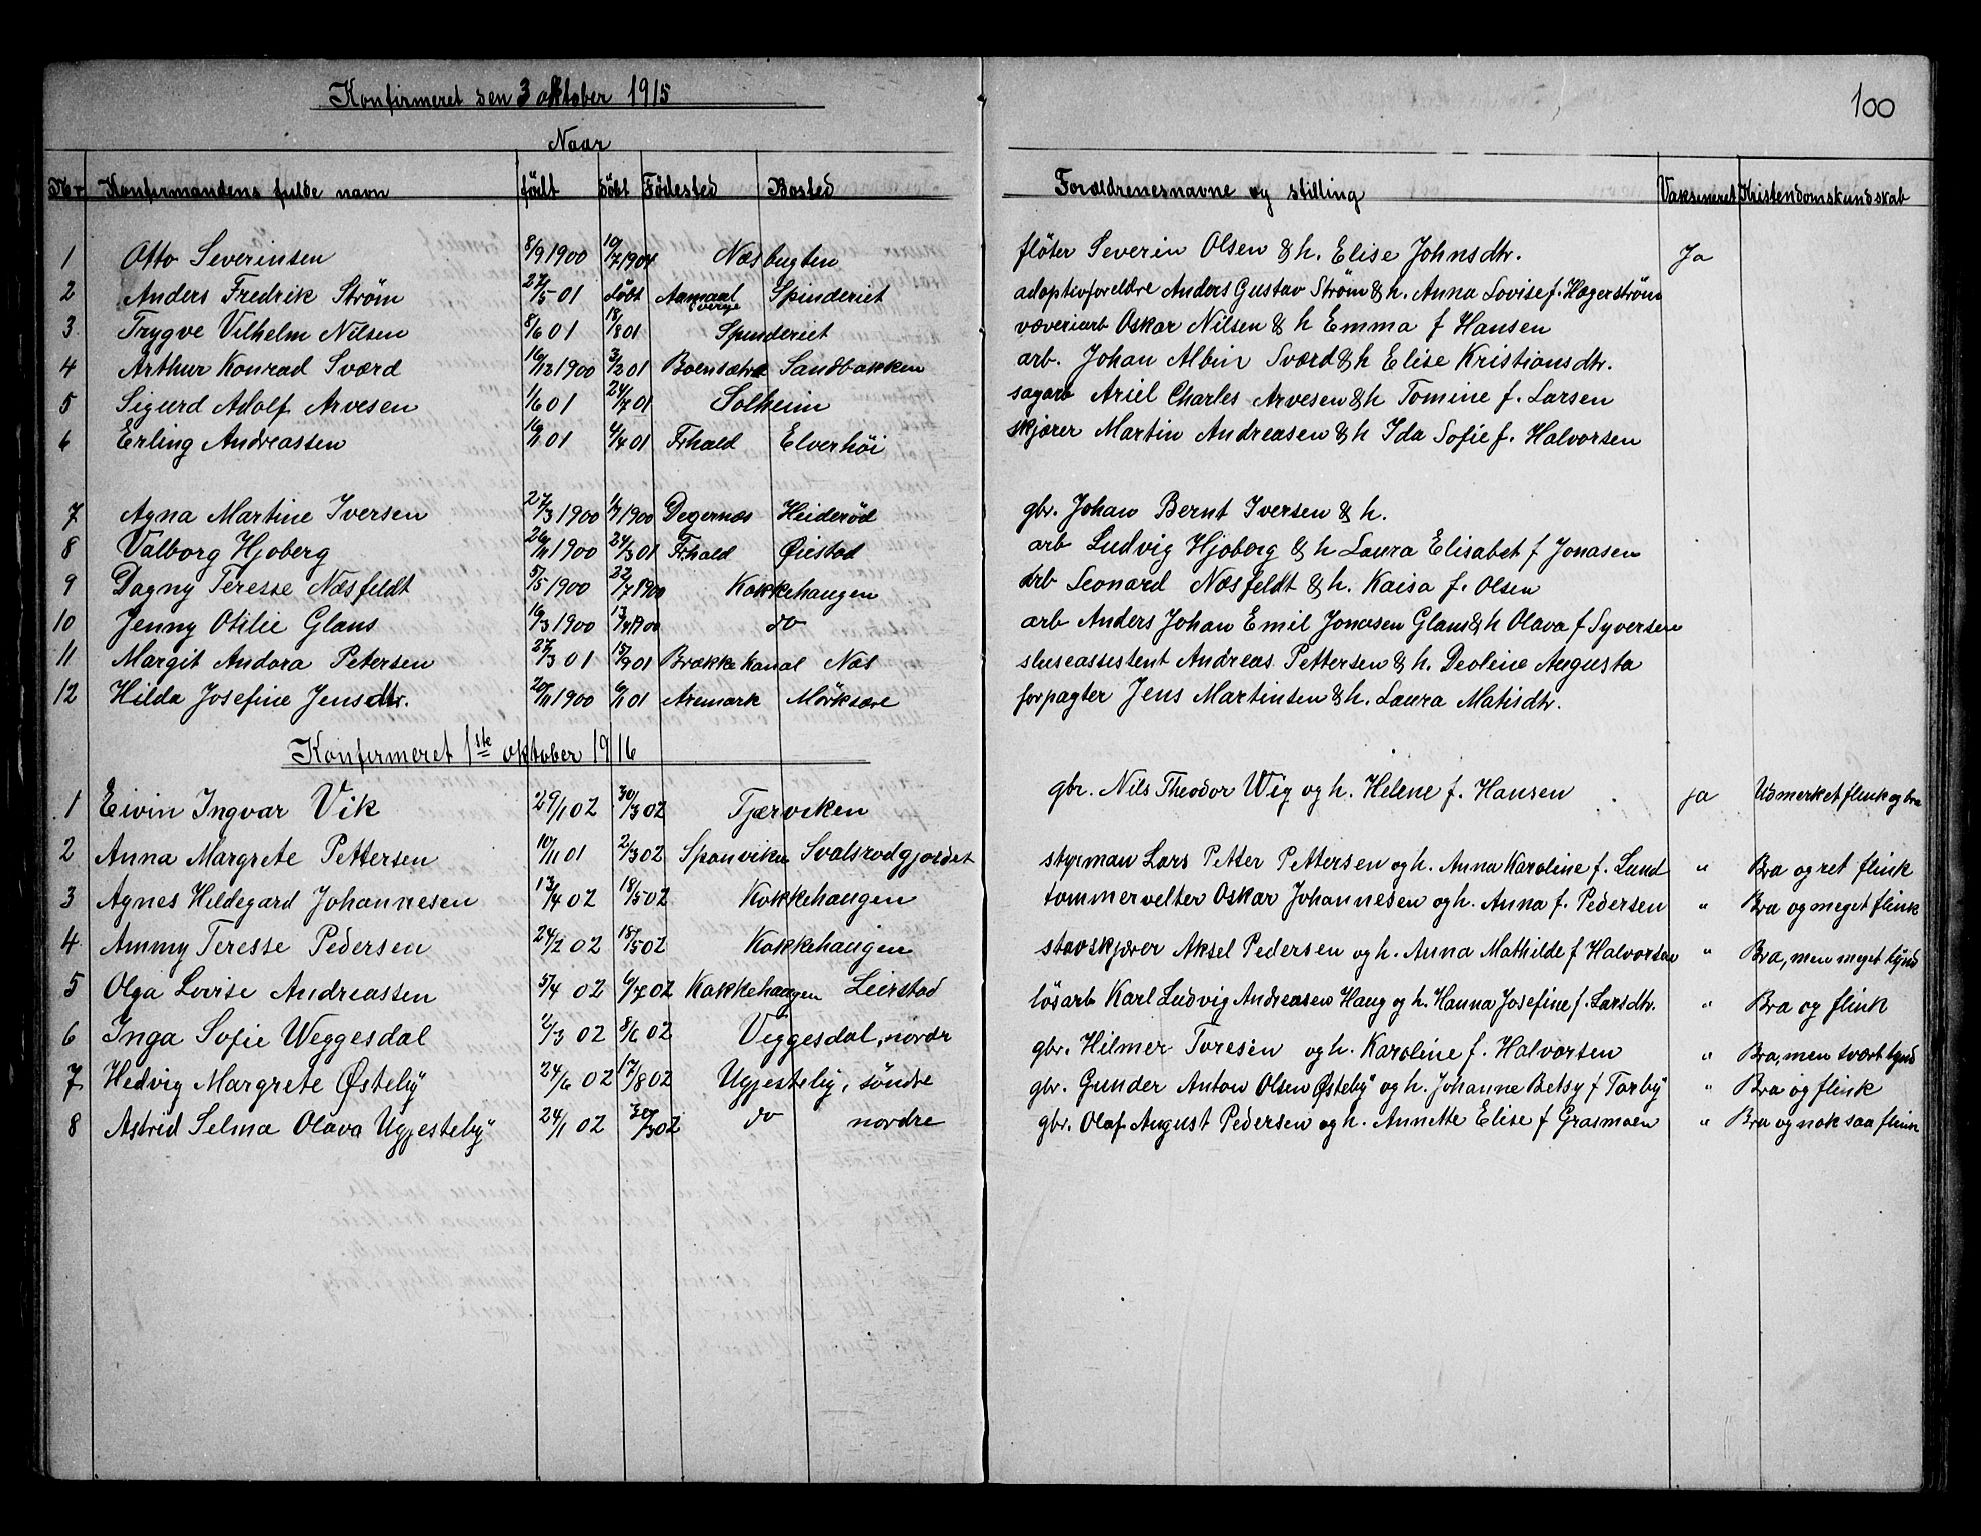 Konfirmeret den 3 oktober 1915
100
Naar
Nr Konfirmandens fulde navn født døbt Fødested Bosted Forældrenesnavne og stilling Vaksineret Kristendomskundskab
1 Otto Severinsen 8/9 1900 10/7 1904 Næsbugten fløter Severin Olsen & h. Elise Johnsdtr. Ja
2 Anders Fredrik Strøm 27/5 01 døbt Aamaal Sverge Spinderiet adoptivforeldre Anders Gustav Strøm & h. Anna Lovise f. Hagerstrøm
3 Trygve Vilhelm Nilsen 8/6 01 18/8 01 Spinderiet væveriarb Oskar Nilsen & h Emma f Hansen
4 Arthur Konrad Sværd 16/12 1900 3/2 01 Boensætre Sandbakken arb. Johan Albin Sværd & h Elise Kristiansdtr.
5 Sigurd Adolf Arvesen 1/6 01 24/7 01 Solheim sagarb Ariel Charles Arvesen & h Tomine f. Larsen
6 Erling Andreassen 16/1 01 4/4 01 Frhald Elverhöi skjærer Martin Andreasen & h Ida Sofie f. Halvorsen
7 Agna Martine Iversen 27/3 1900 1/7 1900 Degernæs Heiderød gbr. Johan Bernt Iversen & h.
8 Valborg Hjoberg 26/11 1900 24/3 01 Frhald Øiestad arb Ludvig Hjoberg & h Laura Elisabet f Jonasen
9 Dagny Teresse Næsfeldt 5/5 1900 22/7 1900 Kokkehaugen arb Leonard Næsfeldt & h. Kaisa f. Olsen
10 Jenny Otilie Glans 16/3 1900 13/4 1900 do arb Anders Johan Emil Jonasen Glans & h Olava f Syversen
11 Margit Andora Petersen 27/3 01 15/9 01 Brække kanal Næs sluseassistent Andreas Pettersen & h. Deoline Augusta
12 Hilda Josefine Jensdtr. 20/11 1900 6/1 01 Aremark Mörksære forpagter Jens Martinsen & h. Laura Matisdtr.
Konfirmeret 1ste oktober 1916
1 Eivin Ingvar Vik 29/1 02 30/3 02 Tjærviken gbr. Nils Theodor Wig og h. Helene f. Hansen ja Udmerket flink og bra
2 Anna Margrete Pettersen 10/11 01 2/3 02 Sponviken Svalsrødgjærdet styrman Lars Petter Pettersen og h. Anna Karoline f. Lund " Bra og ret flink
3 Agnes Hildegard Johannesen 13/4 02 18/5 02 Kokkehaugen tømmervelter Oskar Johannesen og h. Anna f. Pedersen " Bra og meget flink
4 Ammy Teresse Pedersen 24/2 02 18/5 02 Kokkehaugen stavskjærer Aksel Pedersen og h. Anna Mathilde f Halvorsen " Bra, men meget tynd
5 Olga Lovise Andreassen 5/4 02 6/7 02 Kokkehaugen Leirstad løsarb Karl Ludvig Andreasen Haug og h. Hanna Josefine f. Larsdtr. " Bra og flink
6 Inga Sofie Weggesdal 2/3 02 8/6 02 Veggesdal, nordr gbr. Hilmer Toresen og h. Karoline f. Halvorsen " Bra, men svært tynd
7 Hedvig Margrete Østeby 24/6 02 17/8 02 Ugjesteby, søndre gbr. Gunder Anton Olsen Østeby og h. Johanne Betsy f Torby " Bra og flink
8 Astrid Selma Olava Ugjesteby 24/1 02 30/3 02 do nordre gbr. Olaf August Pedersen og h. Annette Elise f Grasmoen " Bra og nok saa flink